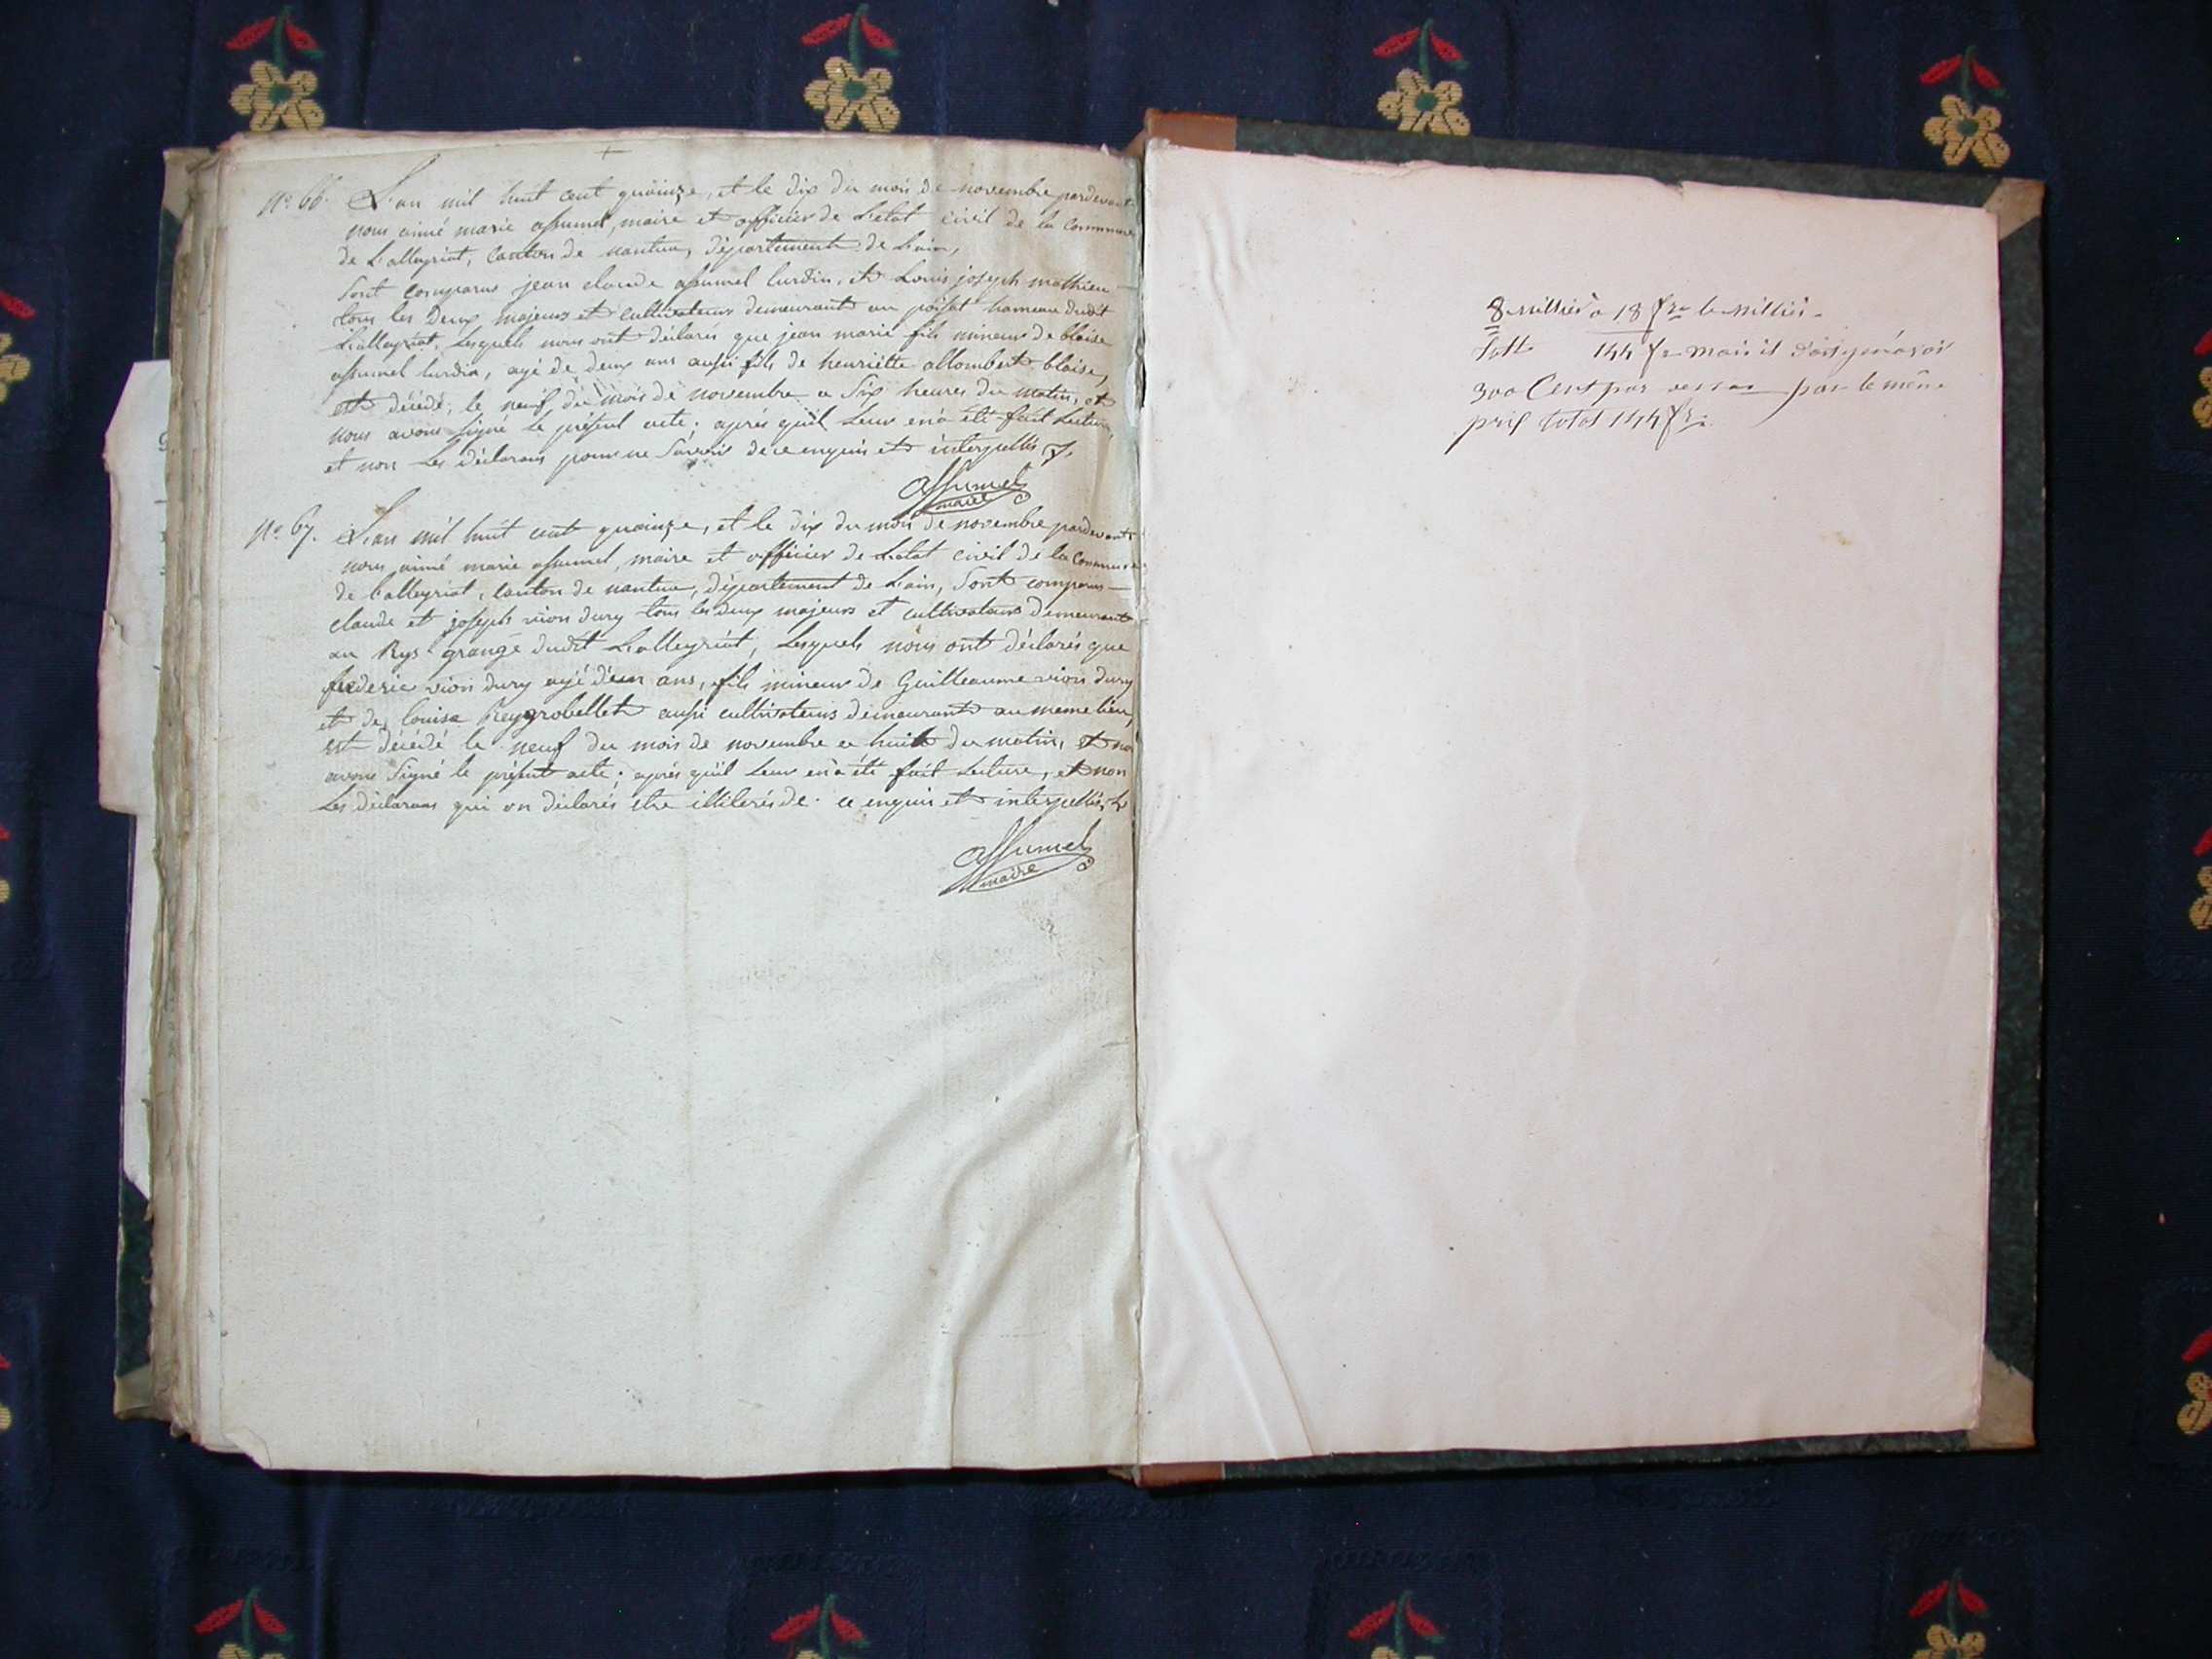 n.o 66. L'an mil huit cent quainze, et le dix du mois de novembre pardevant
nous aimé marie assumel, maire et officier de L'etat civil de la Commune
de L'alleyriat, Canton de nantua, département de L'ain,
Sont comparus jean claude assumel lurdin, et Louis joseph mathieu
tous les deux majeurs et cultivateurs demeurant au poisat hameau dudit
L'alleyriat, Lesquels nous ont déclarés que jean marie fils mineur de blaise
assumel lurdin, agé de deux ans aussi fils de henriétte allombert blaise,
est décédé, le neuf du mois de novembre a Six heures du matin, et
nous avons Signé le présent acte; aprés qu'il Leur en a été fait Lecture,
et non Les déclarans pour ne Savoir de ce enquis et interpellés
assumel
maire
n.o 67. L'an mil huit cent quainze, et le dix du mois de novembre pardevant
nous aimé marie assumel, maire et officier de L'etat civil de la Commune
de L'alleyriat, Canton de nantua, département de L'ain, Sont comparus
claude et joseph vion dury tous les deux majeurs et cultivateurs demeurant
au Rys grange dudit L'alleyriat, Lesquels nous ont déclarés que
frederic vion dury agé d'un ans, fils mineur de Guilleaume vion dury
et de Louise Reygrobellet aussi cultivateurs demeurant au meme lieu,
est décédé le neuf du mois de novembre a huit du matin, et nous
avons Signé le présent acte; aprés qu'il Leur en a été fait Lecture, et non
Les déclarans qui on déclarés etre illiterés de ce enquis et interpellés
assumel
maire
8 millier a 18 frs le millier
144 frs mais il
300 Cent par par le même
prix total 144 frs